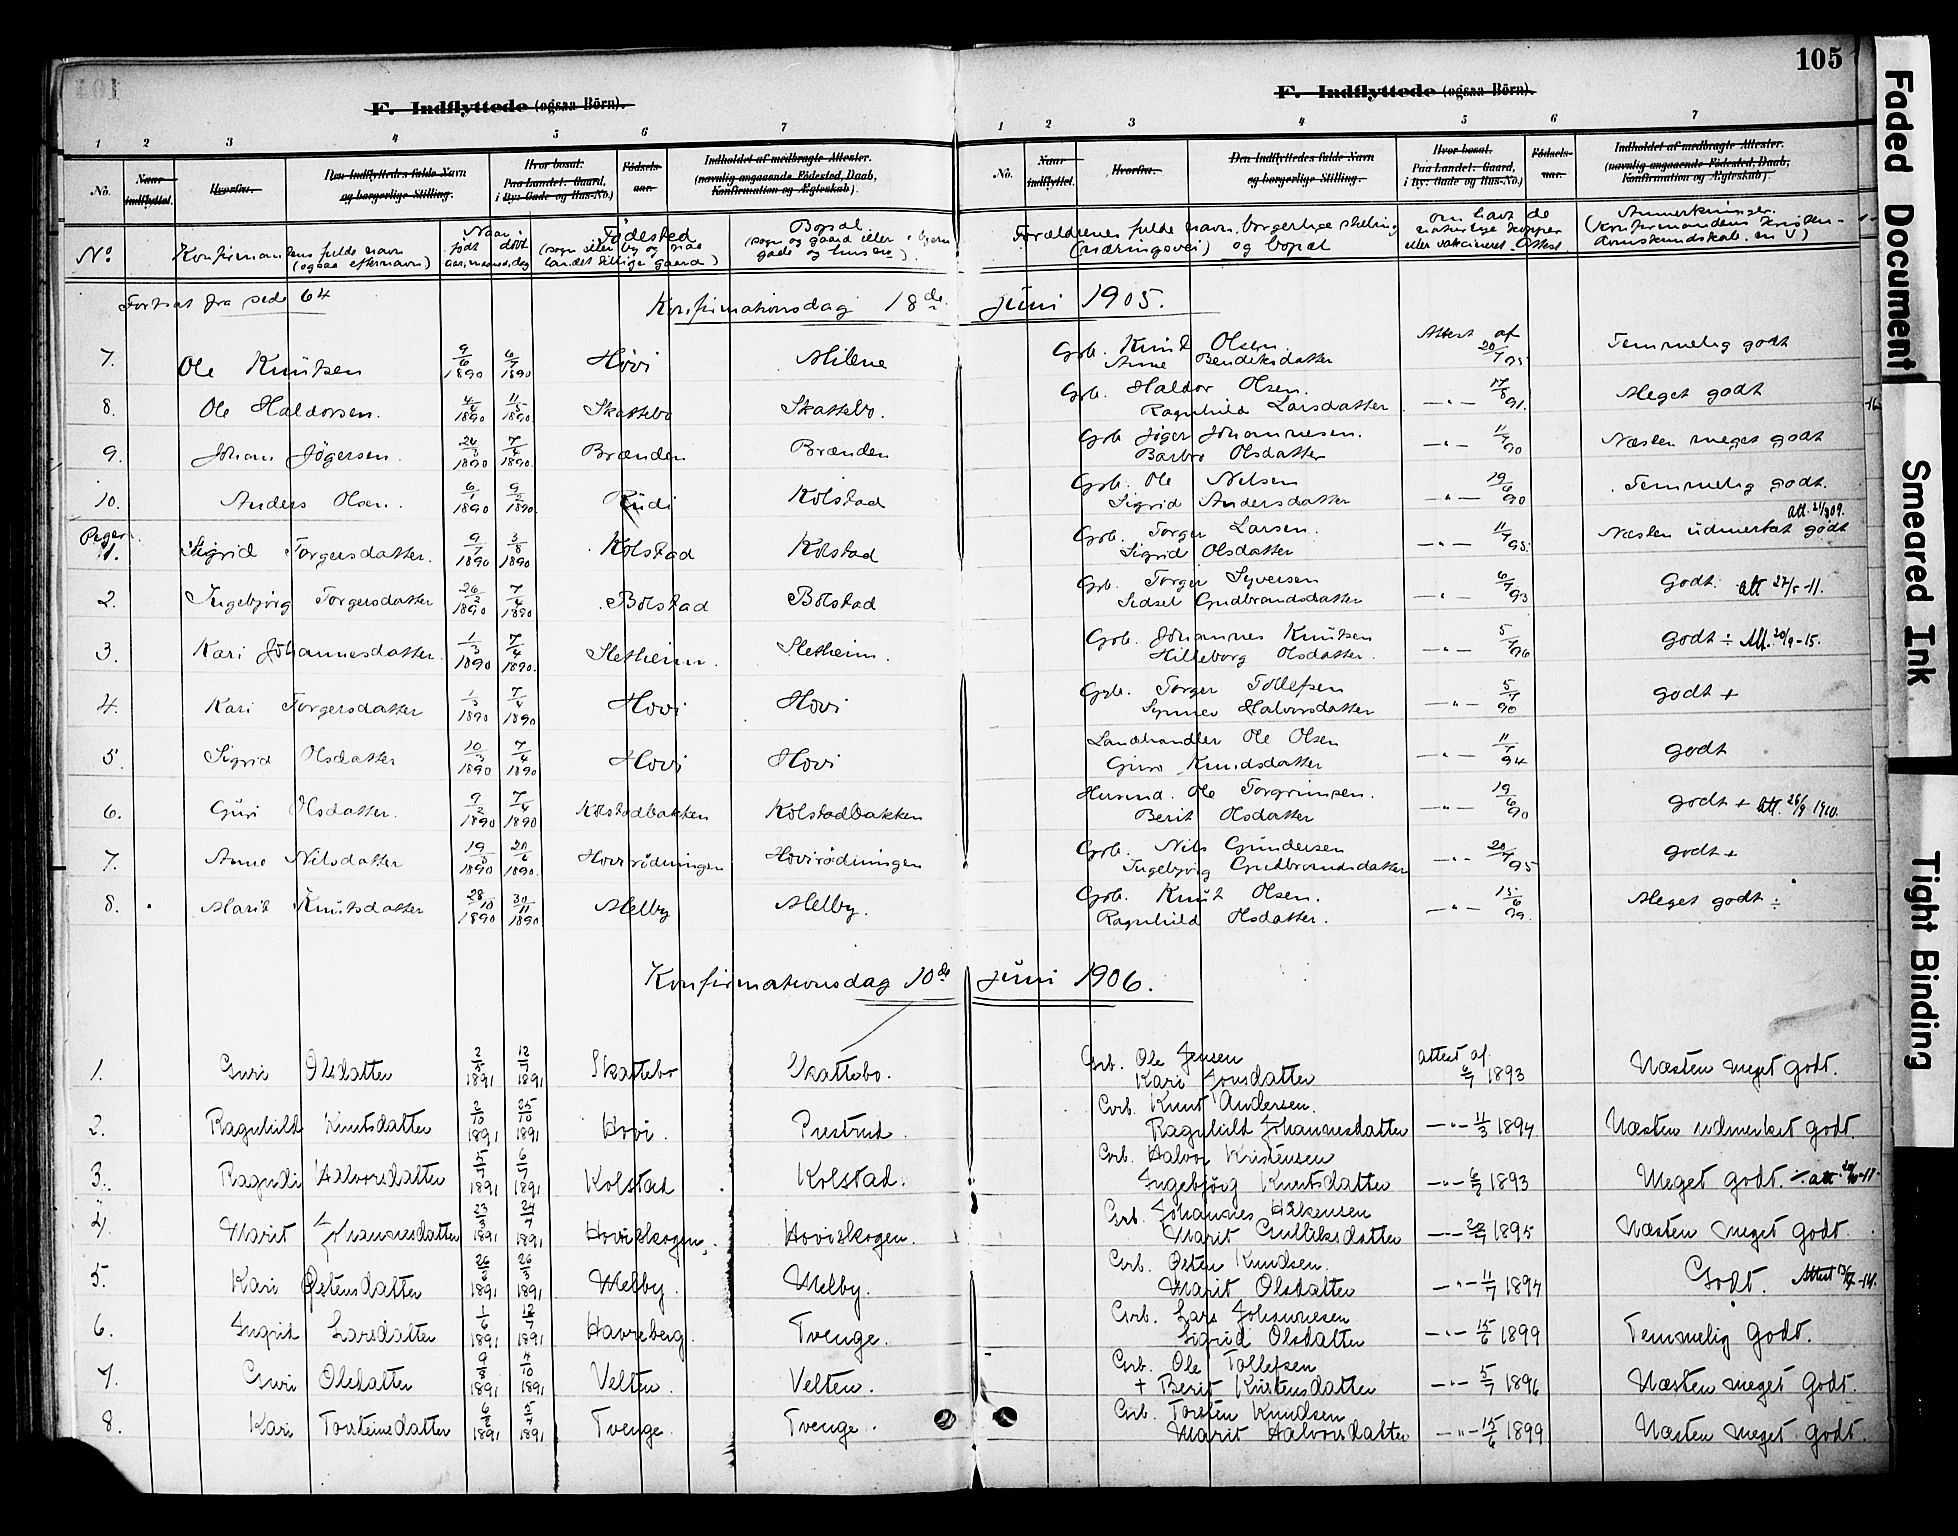 105
F. Indflyttede (ogsaa Börn).
F. Indflyttede (ogsaa Börn).
1 2 3 4 5 6 7
1 2 3 4 5 6 7
No. Naar indflyttet. Hvorfra. Den Indflyttedes fulde Navn og borgerlige Stilling. Hvor bosat. Paa Landet: Gaard, i By: Gade og Hus-No.) Födsels-aar. Indholdet af medbragte Attester. (navnlig angaaende Födested, Daab, Konfirmation og Ægteskab).
No. Naar indflyttet. Hvorfra. Den Indflyttedes fulde Navn og borgerlige Stilling. Hvor bosat. Paa Landet: Gaard, i By: Gade og Hus-No.) Födsels-aar. Indholdet af medbragte Attester. (navnlig angaaende Födested, Daab, Konfirmation og Ægteskab).
No Konfirmandens fulde navn (ogsaa efternavn) Naar født døbt aar, maaned, dag Fødested (sogn eller by og paa landet tillige gaard) Bopæl (sogn og gaard eller i byerne gade og husno) Forældrenes fulde navn, borgerlige stilling (næringsvei) og bopæl om havt de naturlige kopper eller vaksineret. Attest Anmerkninger. (Konfirmandens kristendomskundskab m v)
Fortsat fra side 64
Konfirmationsdag 18de juni 1905.
7. Ole Knutsen 9/6 1890 6/7 1890 Hovi Milene Grb. Knut Olsen Attest af 20/7 95 Temmelig godt
Anne Bendeksdatter
8. Ole Haldorsen. 4/4 1890 11/5 1890 Skattebo Skattebo. Grb. Haldor Olsen. 17/6 91. Meget godt
Ragnhild Larsdatter
9. Johan Jøgersen. 24/3 1890 7/4 1890. Brænden Brænden Grb Jøger Johannesen. 11/7 90 Næsten meget godt
Barbro Olsdatter
10. Anders Olsen. 6/1 1890 9/2 1890. Rudi Kolstad Grb. Ole Nelsen 19/6 90 Temmelig godt.
Sigrid Andersdatter
Piger
1. Sigrid Torgersdatter. 9/7 1890 3/8 1890 Kolstad Kolstad Grb. Torger Larsen. 11/7 95. Næsten udmerket godt att. 21/8 09.
Sigrid Olsdatter
2. Ingebjørg Torgersdatter 26/2 1890 7/4 1890. Bolstad Bolstad Grb. Torger Syversen 6/7 93 Godt. att 27/5-11.
Sidsel Gudbrandsdatter
3. Kari Johannesdatter. 1/3 1890 7/4 1890. Sletheim. Sletheim. Grb. Johannes Knutsen 5/7 96 godt ÷ Att. 20/9-15.
Hilleborg Olsdatter.
4. Kari Torgersdatter 1/3 1890 7/4 1890 Hovi Hovi Grb. Torger Tollefsen 5/7 90 godt +
Synnev Halvorsdatter
5. Sigrid Olsdatter 10/3 1890 7/4 1890 Hovi Hovi Landhandler Ole Olsen 11/7 94 godt
Guro Knudsdatter
6. Guri Olsdatter. 9/2 1890 7/4 1890 Kolstadbakken Kolstadbakken Husmd. Ole Torgrimsen. 19/6 90 godt + att. 26/9 1910.
Berit Olsdatter
7. Anne Nilsdatter 19/5 1890 20/6 1890. Hovirødningen Hovirødningen Grb. Nils Gundersen 20/7 95 godt +
Ingebjørg Gudbrandsdatter
8. Marit Knutsdatter 28/10 1890 30/11 1890. Melby Melby. Grb. Knut Olsen. 15/6 99. Meget godt ÷
Ragnhild Olsdatter.
Konfirmationsdag 10de juni 1906.
1. Guri Olsdatter 2/5 1891 12/7 1891 Skattebo Skattebo. Grb. Ole Jensen attest af 6/7 1893 Næsten meget godt.
Kari Jonsdatter
2. Ragnhild Knutsdatter 2/10 1891 25/10 1891 Hovi. Prestrud. Grb. Knut Andersen. 11/3 1894 Næsten udmerket godt.
Ragnhild Johannesdatter
3. Ragndi Halvorsdatter 5/7 1891 6/7 1891 Kolstad Kolstad. Grb. Halvor Kristensen 1893 Meget godt. ÷ att.
Ingebjørg Knutsdatter
4. Marit Johannesdatter 23/3 1891 24/7 1891 Hoviskogen. Hoviskogen. Grb. Johannes Håkensen 1895 Næsten meget godt.
Marit Gulliksdatter
5. Kari Østensdatter 1891 26/3 1891 Melby. Melby. Grb. Østen Knudsen. 11/7 1894 Godt. Attest
Marit Olsdatter
6. Ingrid Larsdatter 1/6 1891 12/7 1891 Havreberg. Tvenge. Grb. Lars Johannesen 15/6 1899 Temmelig godt.
Sigrid Olsdatter
7. Guri Olsdatter 9/8 1891 4/10 1891 Velten. Velten. Grb. Ole Tollefsen 5/7 1896 Næsten meget godt.
+ Berit Kristensdatter
8. Kari Torsteinsdatter 1891 1891 Tvenge Tvenge. Grb. Torsten Knudsen 15/6 1899 Næsten meget godt.
Marit Halvorsdatter
Faded Document
Smeared Ink
Tight Binding